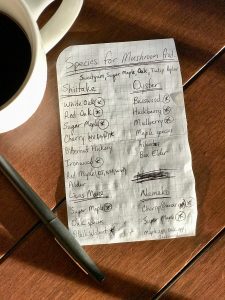 Species for Mushroom Prod.
Sweetgum, Sugar Maple, Oak, Tulip Poplar
Shiitake
White Oak *
Red Oak *
Sugar Maple *
Cherry
Bitternut Hickory
Ironwood *
Red Maple
Alder
Lions Mane
Sugar Maple *
Oak
Oyster
Basswood *
Hackberry *
Mulberry *
Maple species
Box Elder
Nameko
Cherry *
Sugar Maple *